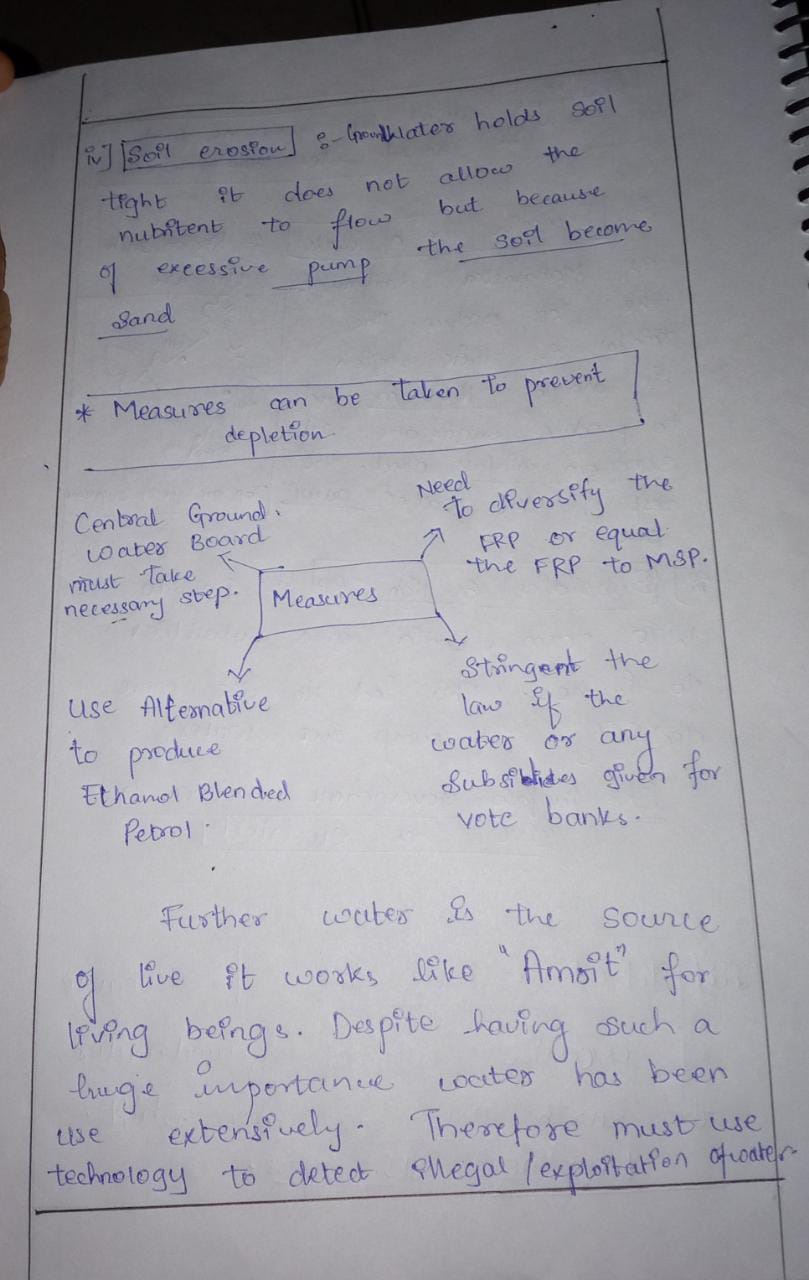 iv] [Soil erosion] :- Groundwater holds soil
tight it does not allow the
nubitent to flow but because
of excessive pump the soil become
sand
* Measures can be taken to prevent
depletion
Central Ground
water Board
must take
necessary step.
Need
to diversify the
FRP or equal
the FRP to MSP.
Measures
Use Alternative
to produce
Ethanol Blended
Petrol.
Stringent the
law if the
water or any
Subsibides given for
vote banks.
Further water is the source
of live it works like "Amrit" for
living beings. Despite having such a
huge importance water has been
use extensively. Therefore must use
technology to detect illegal / exploitation of water.